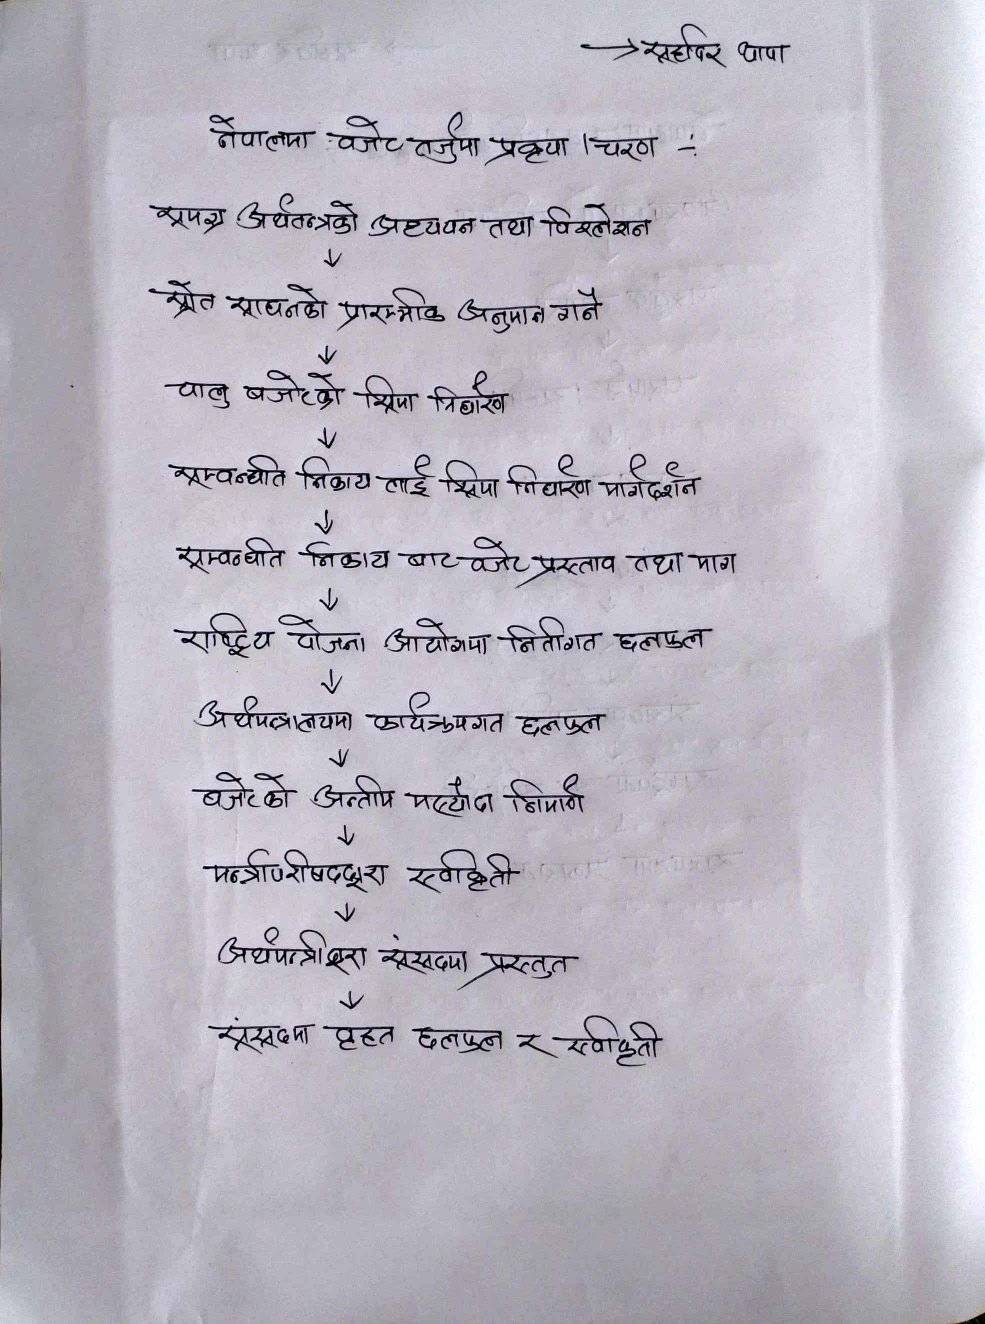 → महावीर थापा
नेपालमा बजेट तर्जुमा प्रकृया / चरण ÷
समग्र अर्थतन्त्रको अध्ययन तथा विश्लेशन
↓
स्रोत साधनको प्रारम्भीक अनुमान गर्ने
↓
चालु बजेटको सिमा निर्धारण
↓
सम्वन्धीत निकाय लाई सिमा निर्धारण मार्गदर्शन
↓
सम्वन्धीत निकाय बाट वजेट प्रस्ताव तथा माग
↓
राष्ट्रिय योजना आयोगमा नितीगत छलफल
↓
अर्थमन्त्रालयमा कार्यक्रमगत छलफल
↓
बजेटको अन्तीम मस्यौदा निर्माण
↓
मन्त्रीपरीषदद्वारा स्वीकृती
↓
अर्थमन्त्रीद्वारा संसदमा प्रस्तुत
↓
संसदमा वृहत छलफल र स्वीकृती